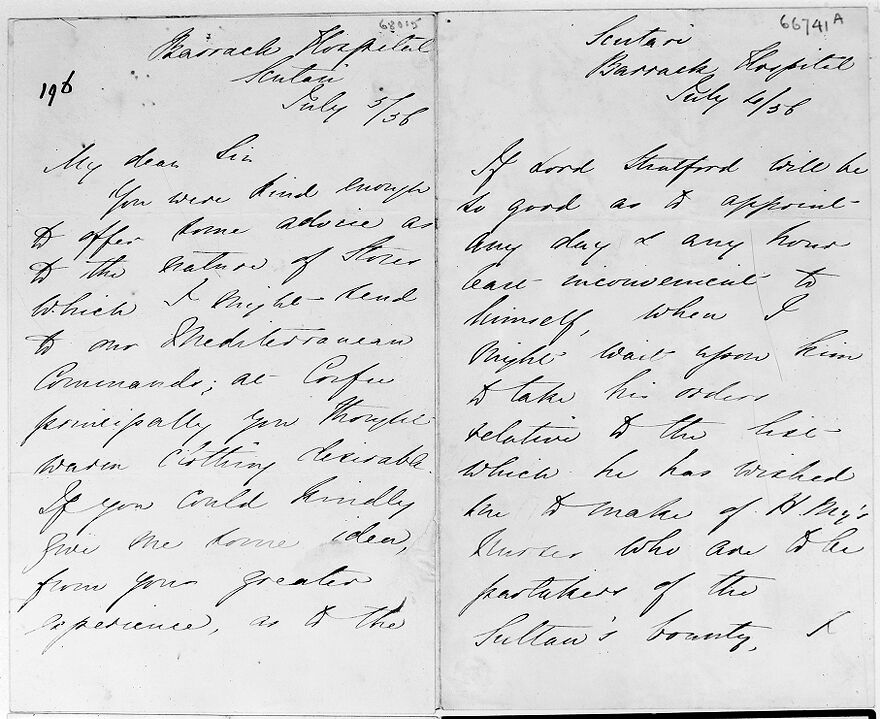 68015
Barrack Hospital
Scutari
196
July 5/56
My dear Sir
You were kind enough
to offer some advice as
to the nature of Stores
which I might send
to our Mediterranean
Commands; at Corfu
principally you thought
warm clothing desirable.
If you could kindly
give me some idea,
from your greater
experience, as to the
66741A
Scutari
Barrack Hospital
July 4/56
If Lord Stratford will be
so good as to appoint
any day & any hour
least inconvenient to
himself, when I
might wait upon him
to take his orders
relative to the list
which he has wished
me to make of H. My's
Nurses who are to be
partakers of the
Sultan's bounty, I